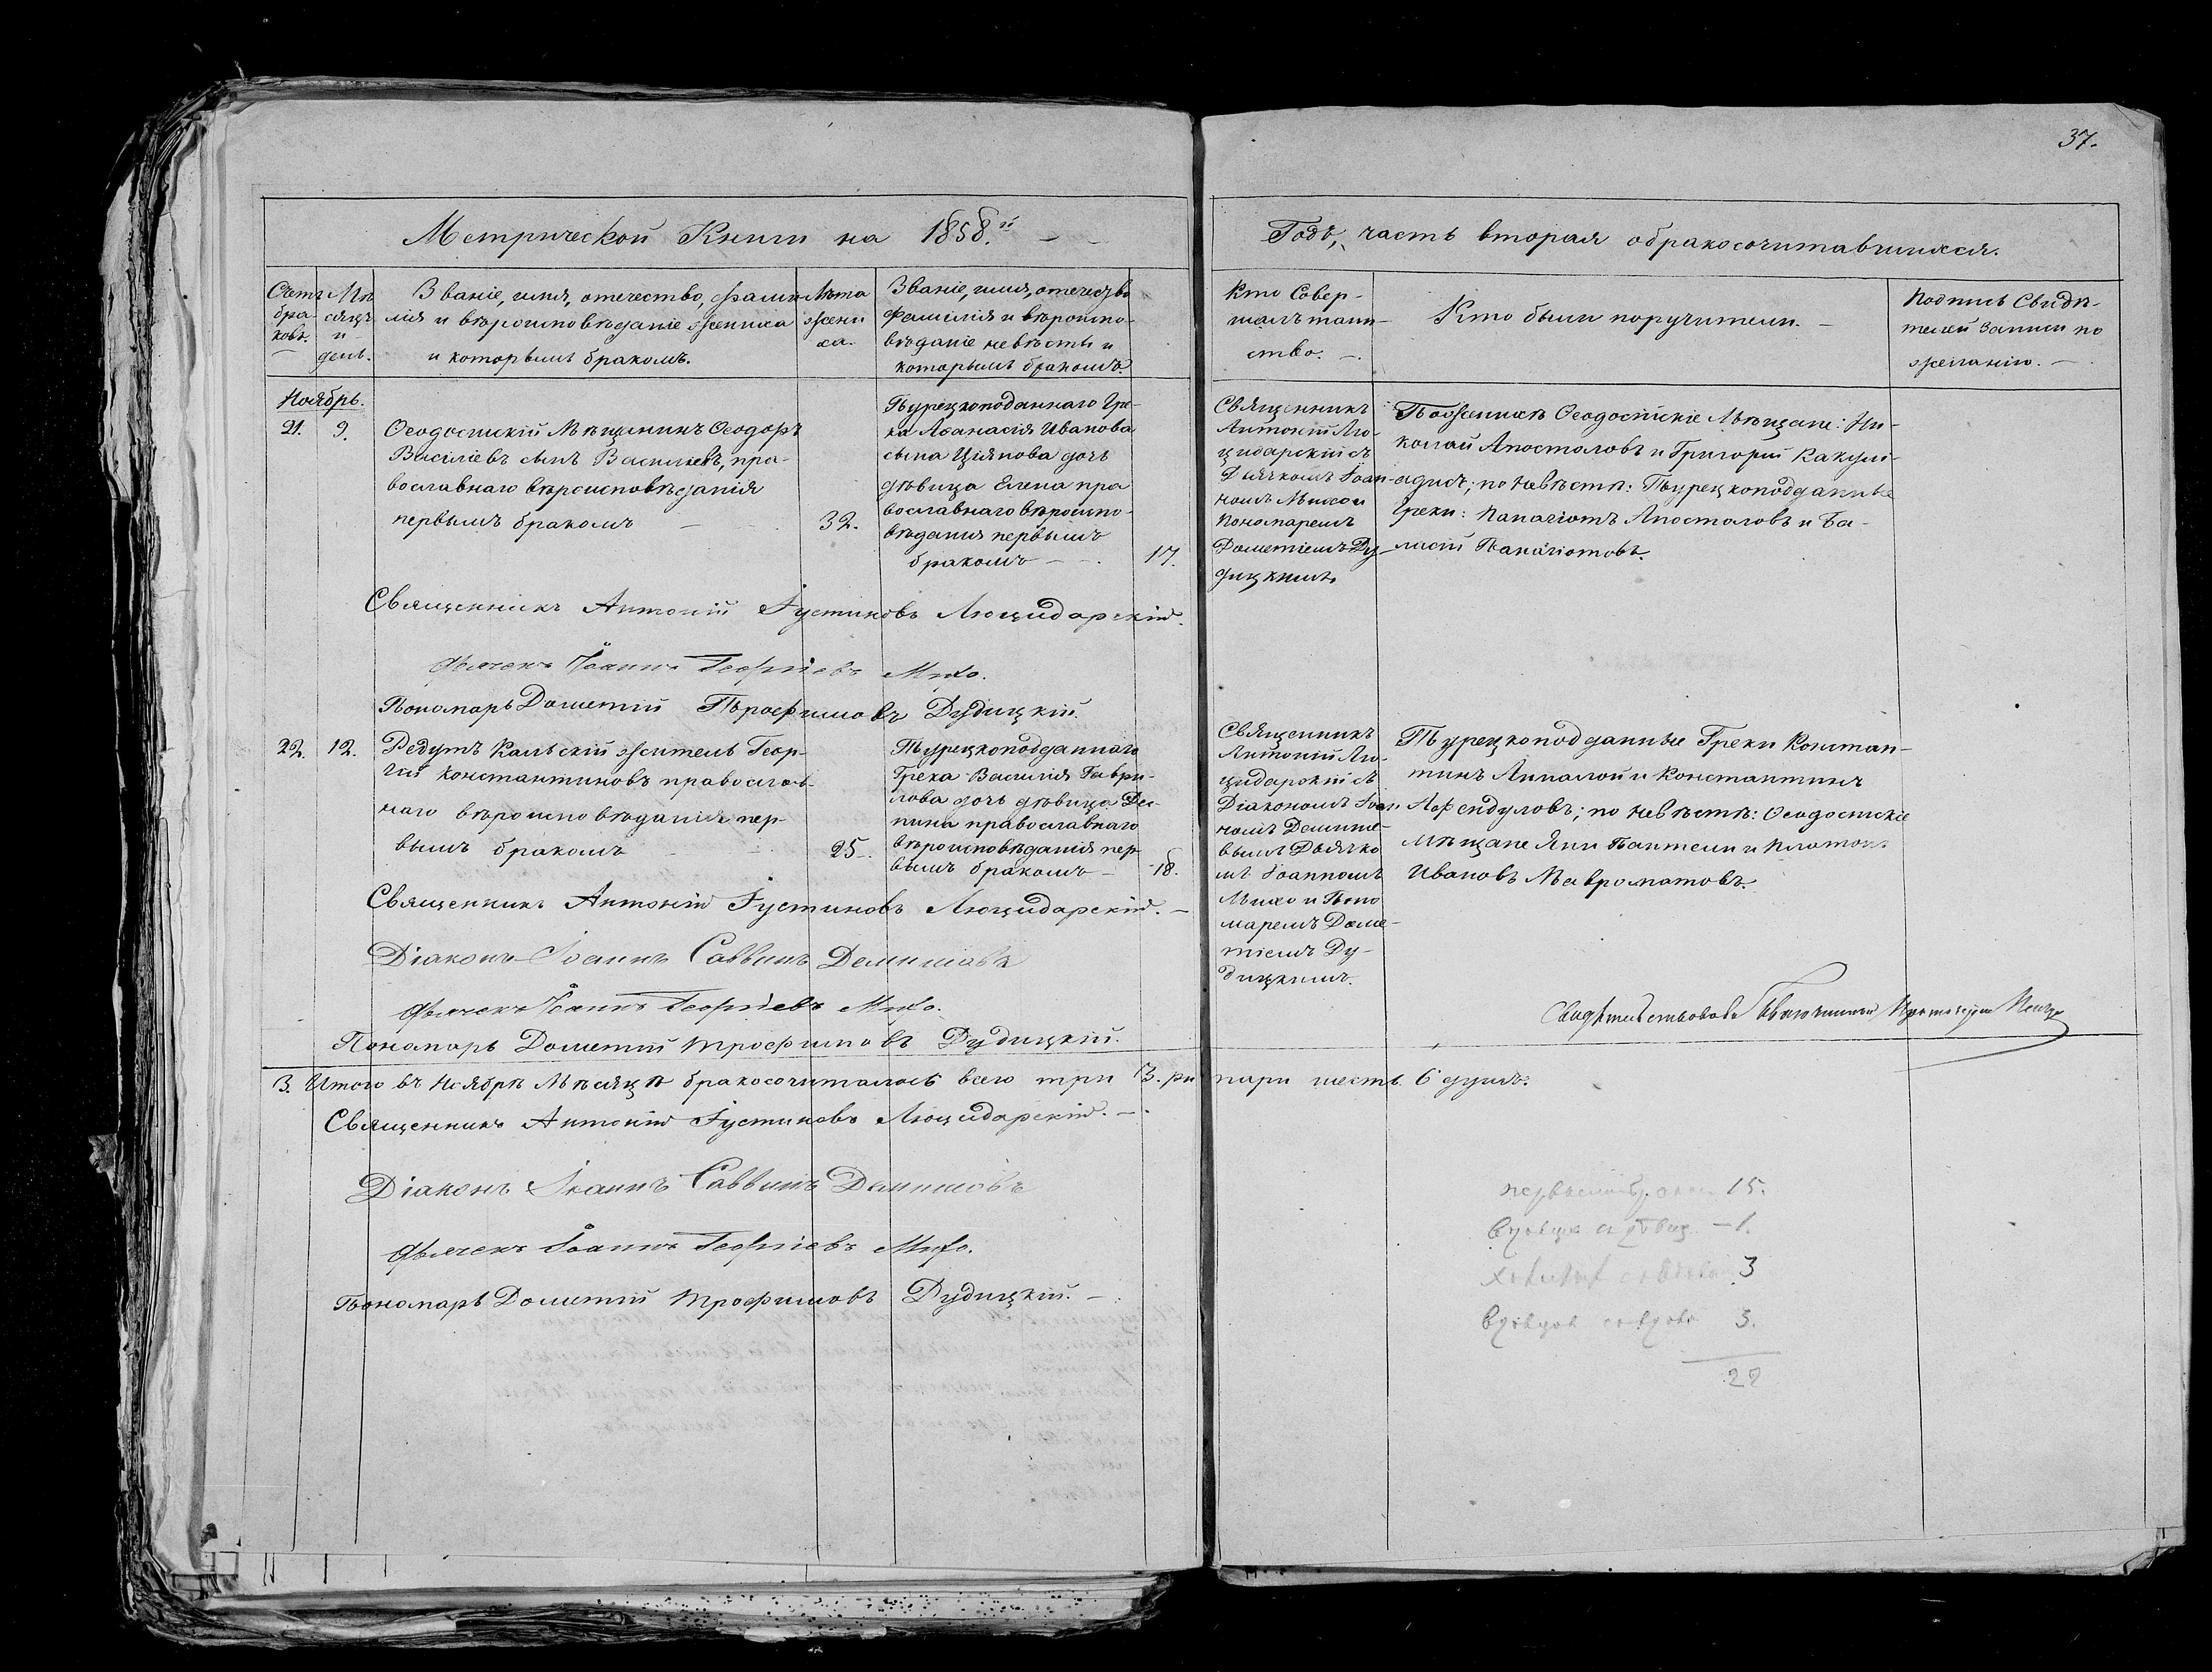 37.
Метрической Книги на 1858.й
Годъ, часть вторая обракосочитавшихся.
Счетъ бра-ковъ.
Мѣ-сяцъ и день.
Званіе, имя, отечество, фами-
лія и вѣроисповѣданіе жениха
и которымъ бракомъ.
Лѣта
жени
ха.
Званіе, имя, отечество
фамилія и вѣроиспо-
вѣданіе невѣсты и
которымъ бракомъ.
Кто Совер-
шалъ таин-
ство.
Кто были поручители.
Подпись Свидѣ-
телей Записи по
желанію.
Ноябрь.
21.
9.
Ѳеодосійскій Мѣщанинъ Ѳеодоръ
Василіевъ сынъ Василіевъ, пра-
вославнаго вѣроисповѣданія
первымъ бракомъ
32.
Турецкоподаннаго Гре-
ка Аѳанасія Иванова
сына Ціянова дочь
дѣвица Елена пра
вославнаго вѣроиспо-
вѣданія первымъ
бракомъ
17.
Священникъ
Антоній Лю-
цидарскій съ
Дьячкомъ Іоан-
номъ Михо и
Пономаремъ
Дометіемъ Ду-
дицкимъ.
По женихѣ Ѳеодосійскіе Мѣщане: Ни-
колай Апостоловъ и Григорій Какули-
адисъ; по невѣстѣ: Турецкоподданые
Греки: Панагіотъ Апостоловъ и Ва-
ласій Панагіотовъ.
Священникъ Антоній Іустиновъ Люцидарскій.
Дьячекъ Іоаннъ Георгіевъ Михо.
Пономарь Дометій Трофимовъ Дудицкій.
22.
12.
Редутъ Кальскій житель Геор-
гій Константиновъ православ-
наго вѣроисповѣданія пер-
вымъ бракомъ
25.
Турецкоподданнаго
Грека Василія Гаври-
лова дочь дѣвица Дес-
пина православнаго
вѣроисповѣданія пер-
вымъ бракомъ
18.
Священникъ
Антоній Лю-
цидарскій съ
Діакономъ Іоан
номъ Демише-
вымъ Дьячко
мъ Іоанномъ
Михо и Поно
маремъ Доме-
тіемъ Ду-
дицкимъ.
Турецкоподданные Греки Констан-
тинъ и Константинъ
Афендуловъ; по невѣстѣ: Ѳеодосійскіе
мѣщане Яни Пантели и Платонъ
Ивановъ Мавроматовъ.
Священникъ Антоній Іустиновъ Люцидарскій.
Діаконъ Іоаннъ Саввинъ Демишовъ
Дьячекъ Іоаннъ Георгіевъ Михо.
Пономарь Дометій Трофимовъ Дудицкій.
Свидѣтельствовалъ Благочинный
3. Итого въ Ноябрѣ Мѣсяцѣ бракосочиталось всего три 3. пары шесть 6 душъ.
Священникъ Антоній Іустиновъ Люцидарскій.
Діаконъ Іоаннъ Саввинъ Демишовъ
Дьячекъ Іоаннъ Георгіевъ Михо.
Пономарь Дометій Трофимовъ Дудицкій.
15.
1.
3
3.
22